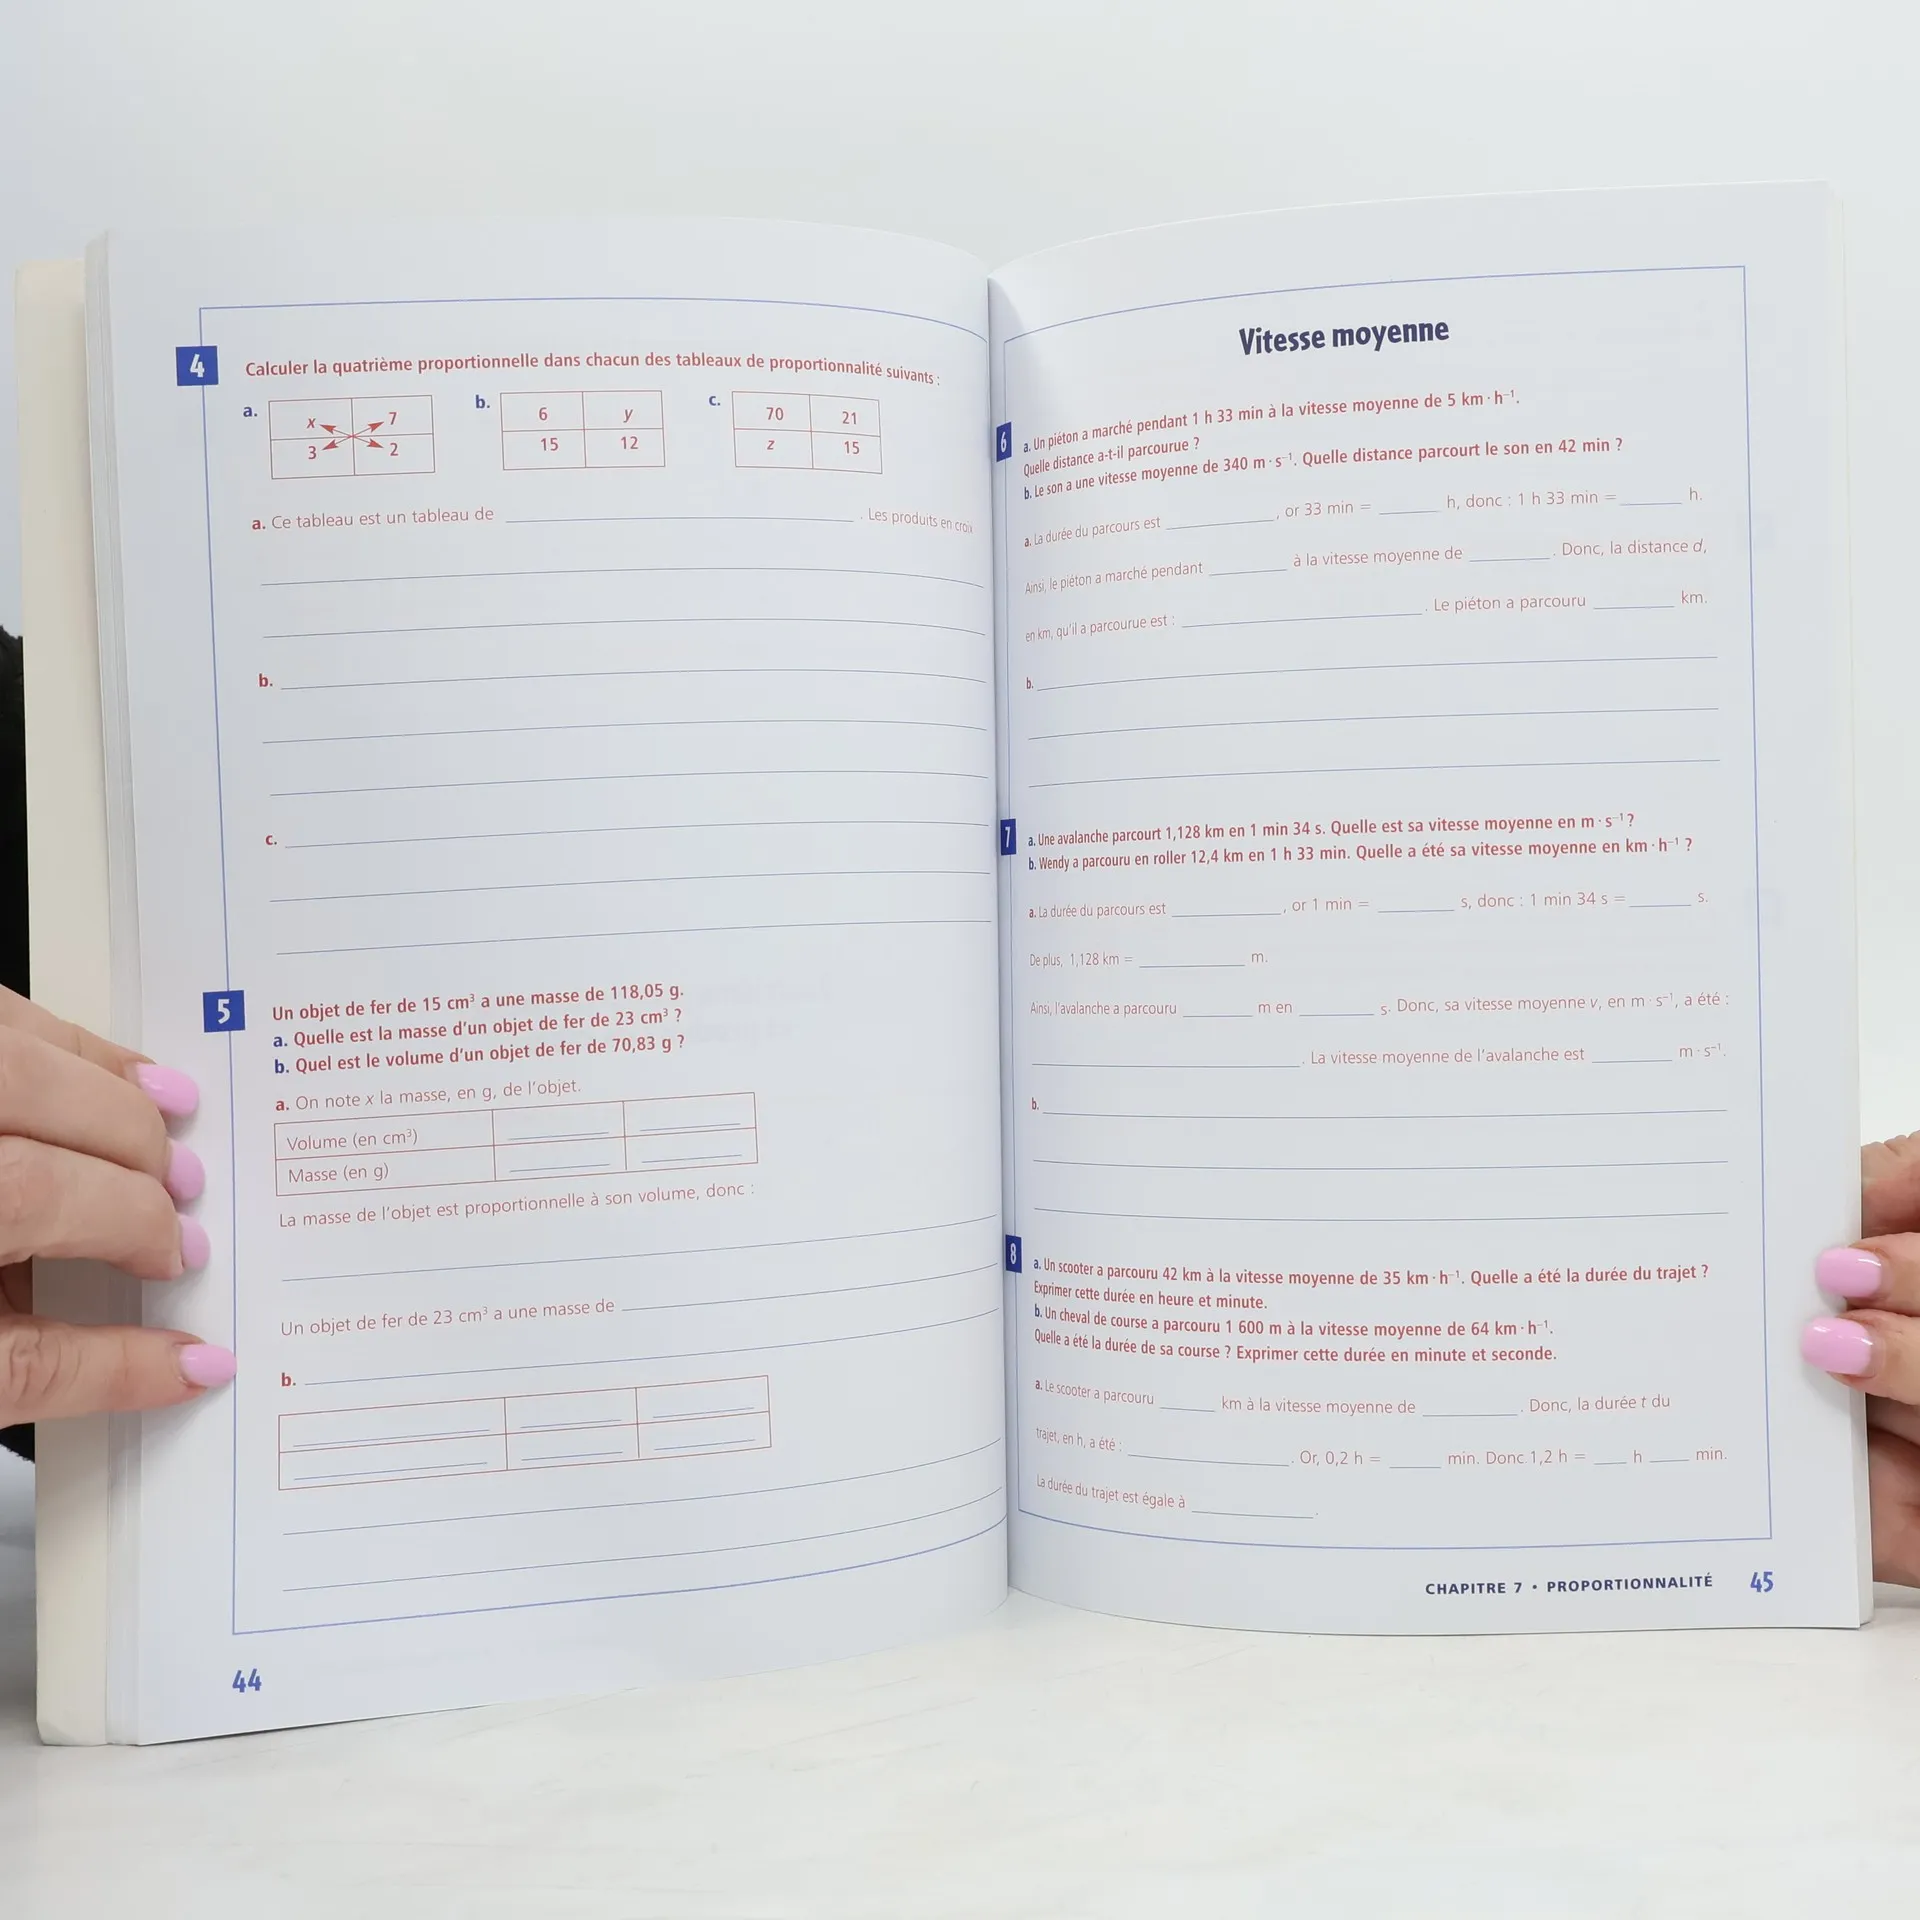 4 Calculer la quatrième proportionnelle dans chacun des tableaux de proportionnalité suivants :
a. x 7 b. 6 y c. 70 21
3 2 15 12 z 15
a. Ce tableau est un tableau de ____ . Les produits en croix
b.
c.
5 Un objet de fer de 15 cm³ a une masse de 118,05 g.
a. Quelle est la masse d'un objet de fer de 23 cm³ ?
b. Quel est le volume d'un objet de fer de 70,83 g ?
a. On note x la masse, en g, de l'objet.
Volume (en cm³)
Masse (en g)
La masse de l'objet est proportionnelle à son volume, donc :
Un objet de fer de 23 cm³ a une masse de ____
b.
44
Vitesse moyenne
6 a. Un piéton a marché pendant 1 h 33 min à la vitesse moyenne de 5 km · h⁻¹.
Quelle distance a-t-il parcourue ?
b. Le son a une vitesse moyenne de 340 m · s⁻¹. Quelle distance parcourt le son en 42 min ?
a. La durée du parcours est ____, or 33 min = ____ h, donc : 1 h 33 min = ____ h.
Ainsi, le piéton a marché pendant ____ à la vitesse moyenne de ____ . Donc, la distance d,
en km, qu'il a parcourue est : ____ . Le piéton a parcouru ____ km.
b.
7 a. Une avalanche parcourt 1,128 km en 1 min 34 s. Quelle est sa vitesse moyenne en m · s⁻¹ ?
b. Wendy a parcouru en roller 12,4 km en 1 h 33 min. Quelle a été sa vitesse moyenne en km · h⁻¹ ?
a. La durée du parcours est ____, or 1 min = ____ s, donc : 1 min 34 s = ____ s.
De plus, 1,128 km = ____ m.
Ainsi, l'avalanche a parcouru ____ m en ____ s. Donc, sa vitesse moyenne v, en m · s⁻¹, a été :
____ . La vitesse moyenne de l'avalanche est ____ m · s⁻¹.
b.
8 a. Un scooter a parcouru 42 km à la vitesse moyenne de 35 km · h⁻¹. Quelle a été la durée du trajet ?
Exprimer cette durée en heure et minute.
b. Un cheval de course a parcouru 1 600 m à la vitesse moyenne de 64 km · h⁻¹.
Quelle a été la durée de sa course ? Exprimer cette durée en minute et seconde.
a. Le scooter a parcouru ____ km à la vitesse moyenne de ____ . Donc, la durée t du
trajet, en h, a été : ____ . Or, 0,2 h = ____ min. Donc 1,2 h = ____ h ____ min.
La durée du trajet est égale à ____ .
CHAPITRE 7 • PROPORTIONNALITÉ 45